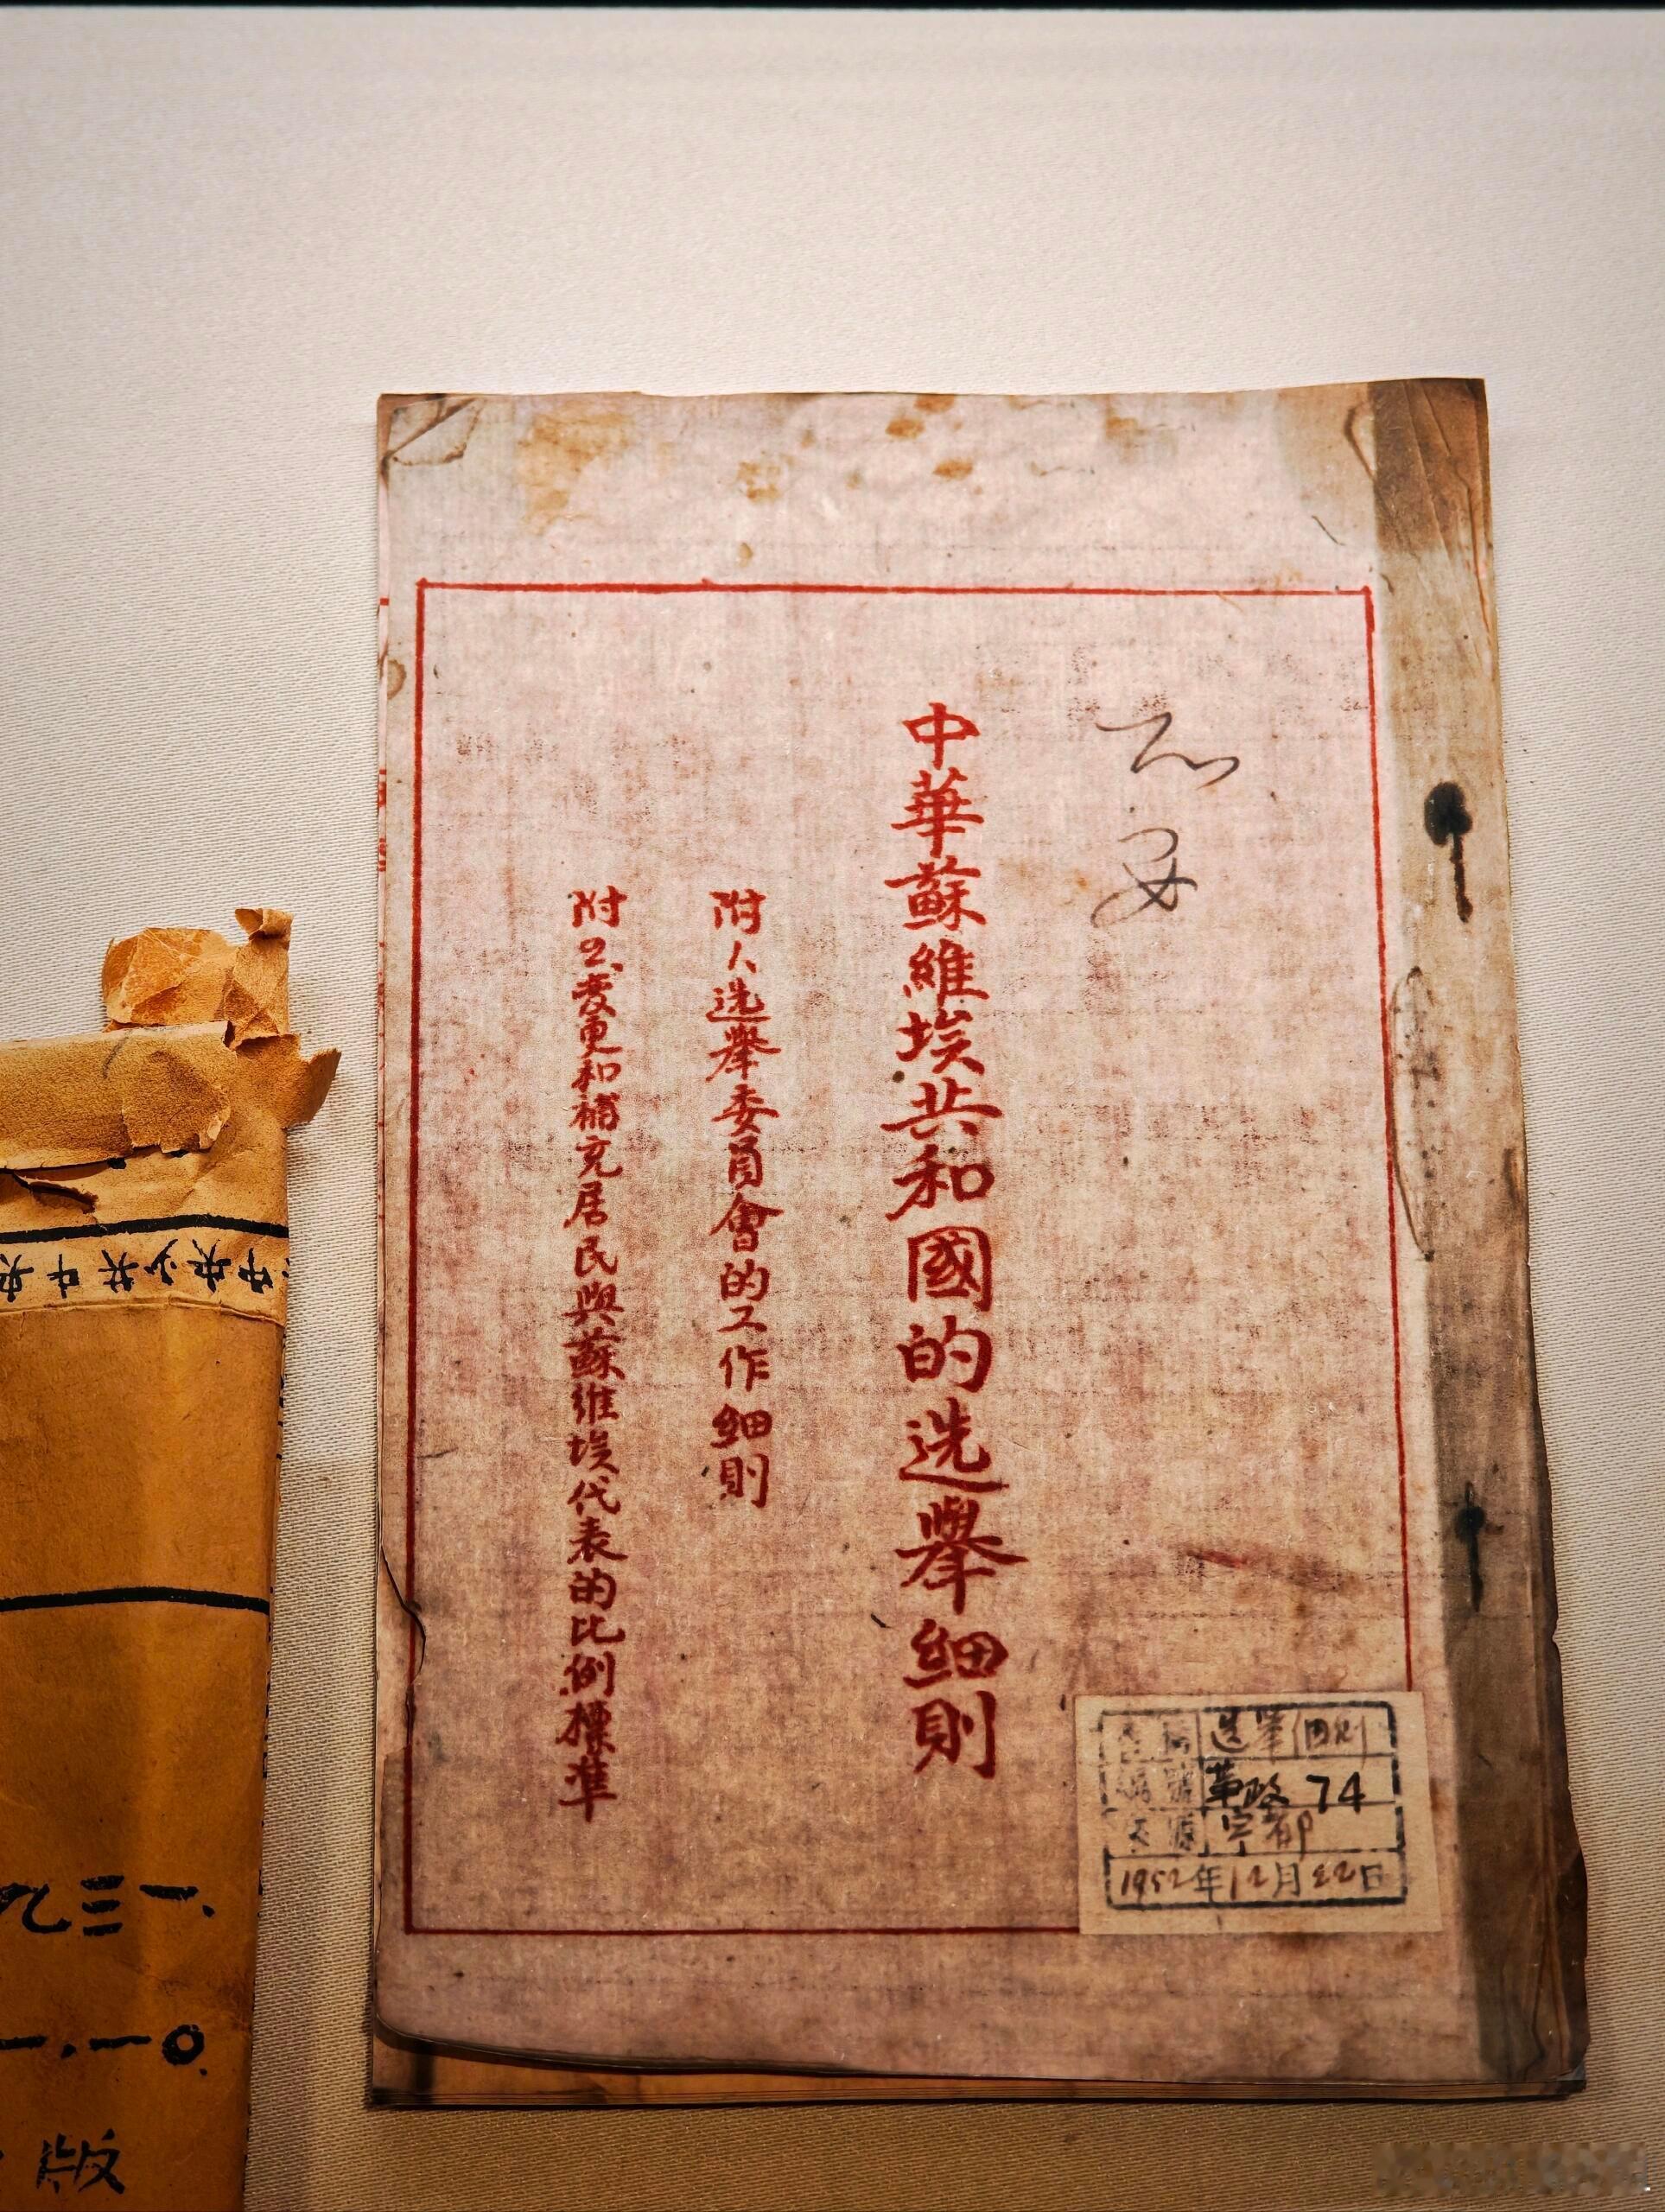 中華蘇維埃共和國的选舉細則
附1、选舉委員會的工作細則
附2、变更和補充居民與蘇維埃代表的比例標準
选举细则
編號 革政 74
来源 宁都
1952年12月22日
中央少共中央
九三一、
一.一〇.
版